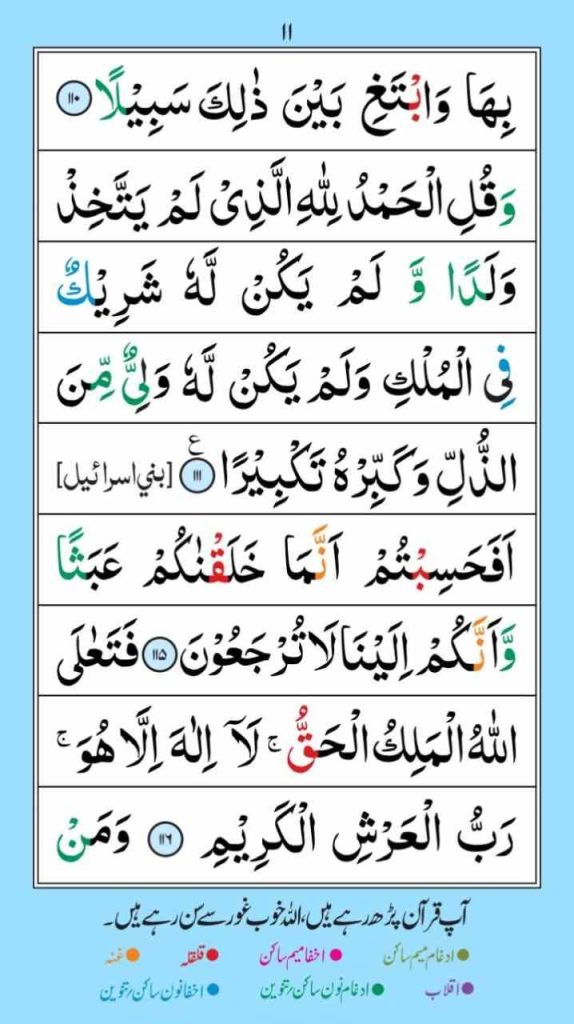 ۱۱
بِهَا وَابْتَغِ بَيْنَ ذٰلِكَ سَبِيْلًا ۝۱۱۰
وَقُلِ الْحَمْدُ لِلّٰهِ الَّذِىْ لَمْ يَتَّخِذْ
وَلَدًا وَّ لَمْ يَكُنْ لَّهٗ شَرِيْكٌ
فِى الْمُلْكِ وَلَمْ يَكُنْ لَّهٗ وَلِىٌّ مِّنَ
الذُّلِّ وَكَبِّرْهُ تَكْبِيْرًا ۝۱۱۱ ع [بني اسرائيل]
اَفَحَسِبْتُمْ اَنَّمَا خَلَقْنٰكُمْ عَبَثًا
وَّاَنَّكُمْ اِلَيْنَا لَا تُرْجَعُوْنَ ۝۱۱۵ فَتَعٰلَى
اللهُ الْمَلِكُ الْحَقُّ ۚ لَآ اِلٰهَ اِلَّا هُوَ ۚ
رَبُّ الْعَرْشِ الْكَرِيْمِ ۝۱۱۶ وَمَنْ
آپ قرآن پڑھ رہے ہیں، اللہ خوب غور سے سن رہے ہیں۔
ادغام میم ساکن اخفا میم ساکن قلقلہ غنہ
اقلاب ادغام نون ساکن/تنوین اخفا نون ساکن/تنوین